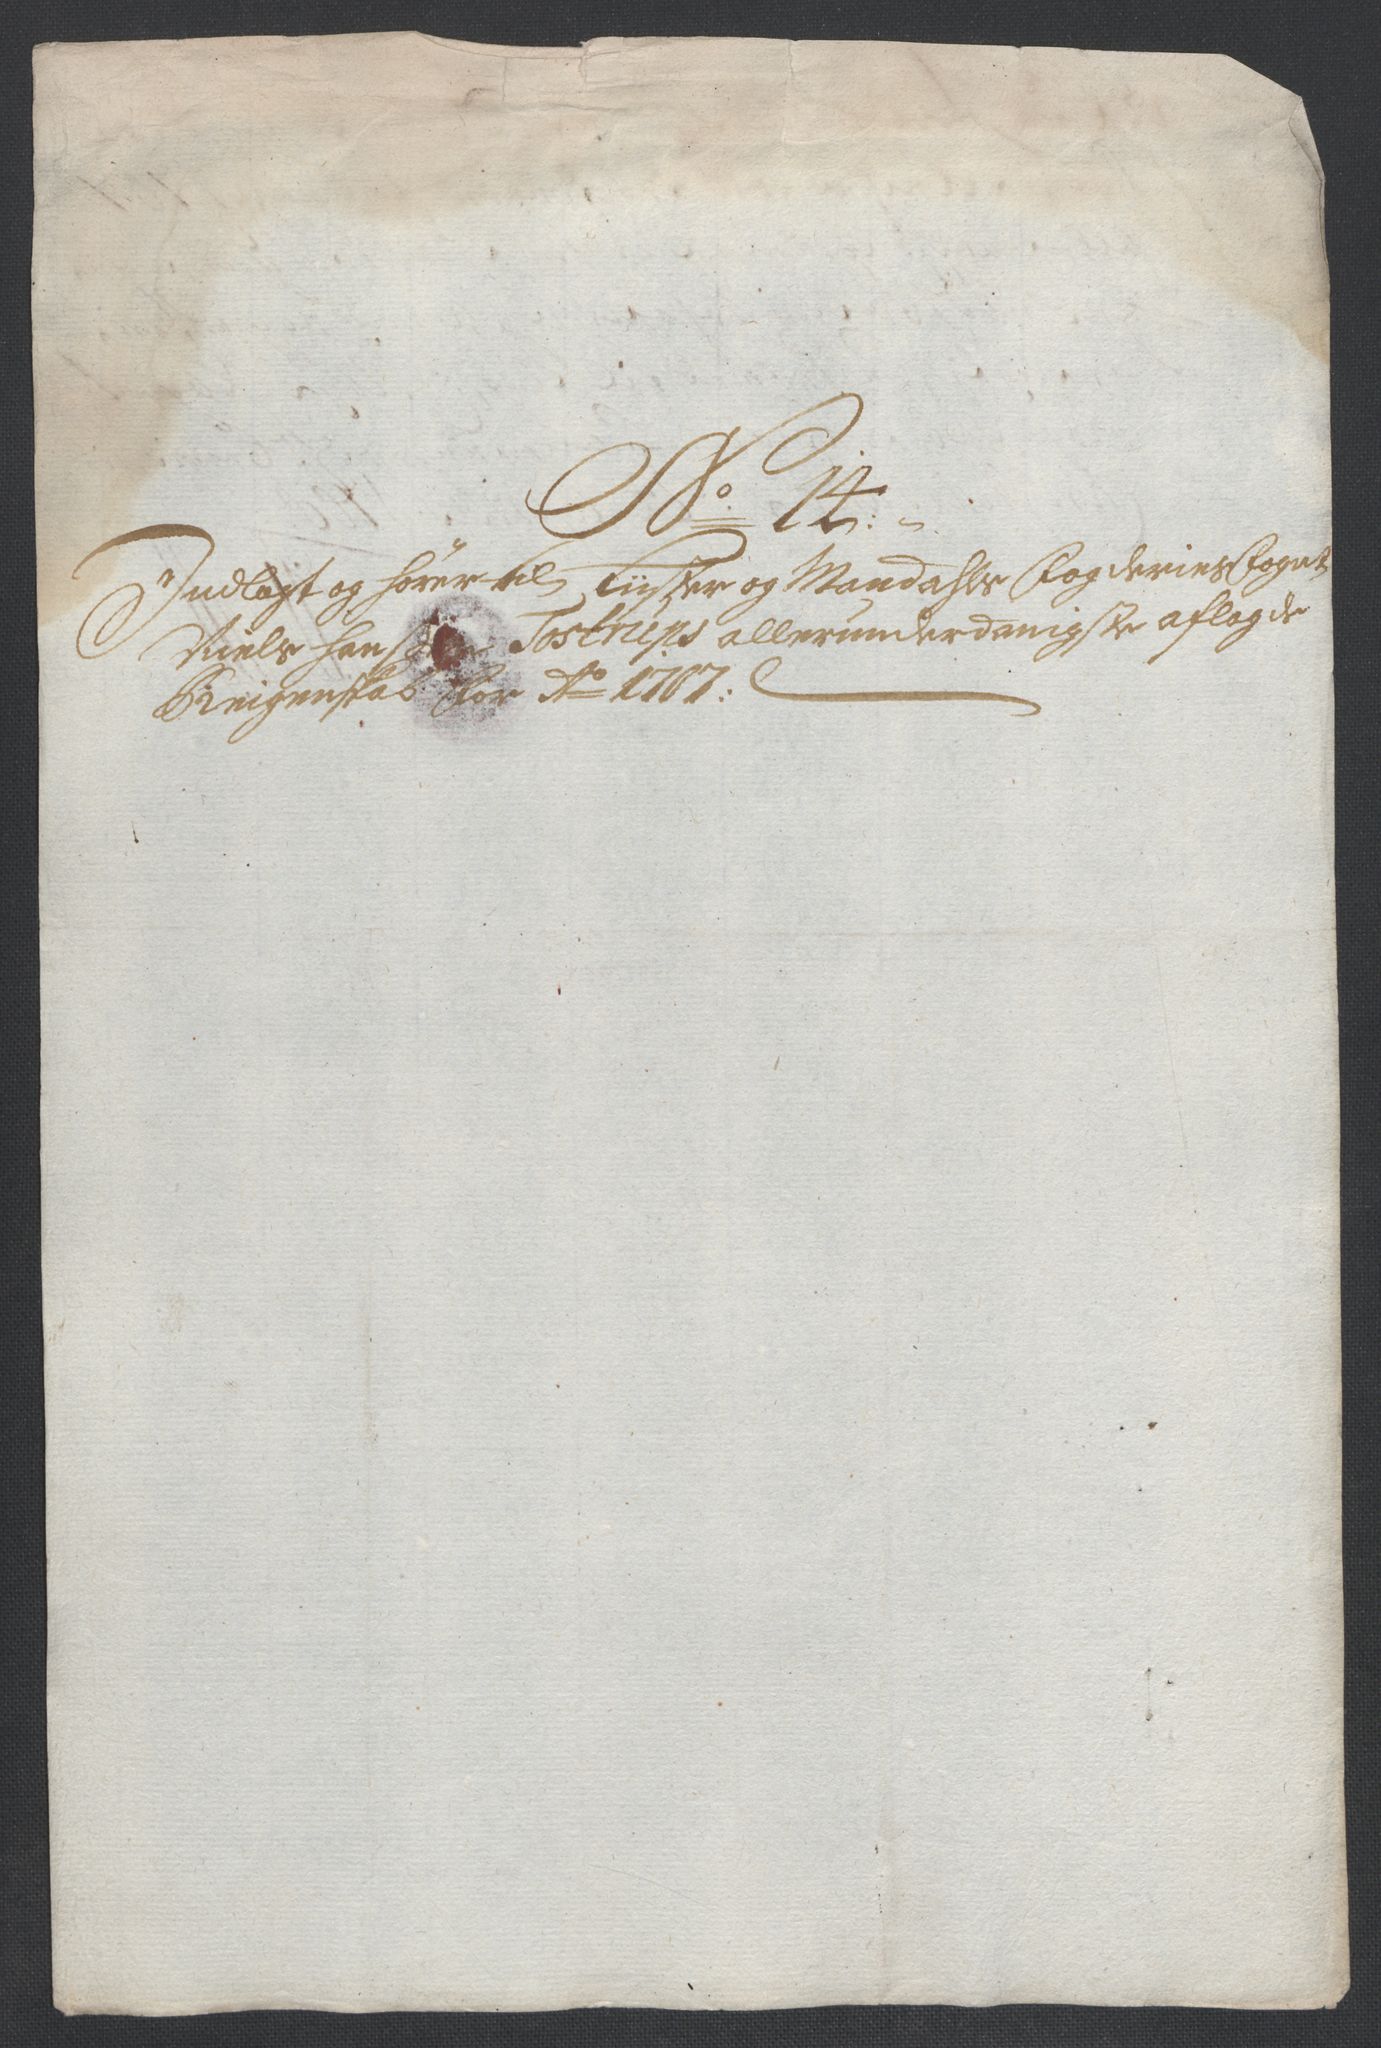 No. 14:
Indlagt og hører til Lister og Mandahls Fogderies Foget
Niels Hansen Tostrups allerunderdanigste aflagde
Reigenskab for Ao 1707: